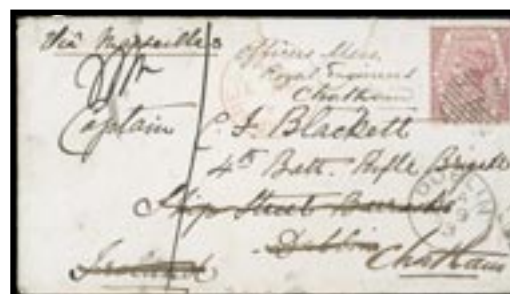 Via Marseilles
Officers Mess
Royal Engineers
Chatham
Captain C. F. Blackett
4th Batt. Rifle Brigade
Ship Street Barracks
Dublin
Ireland
Chatham
DUBLIN